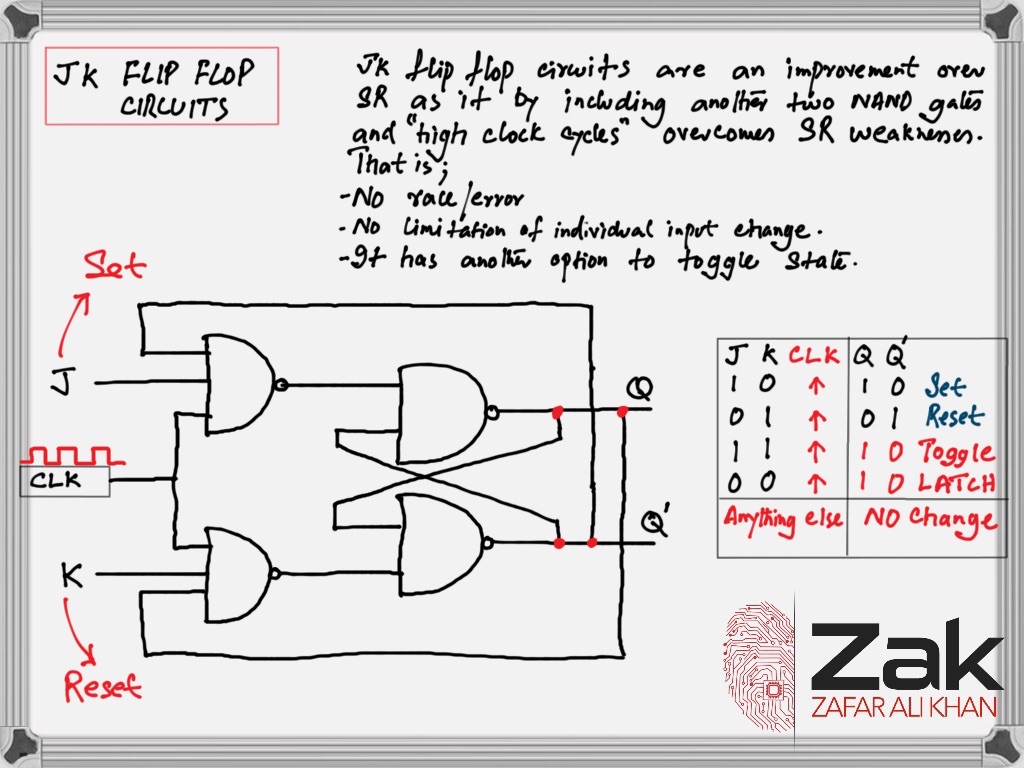 JK FLIP FLOP
CIRCUITS
JK flip flop circuits are an improvement over
SR as it by including another two NAND gates
and "high clock cycles" overcomes SR weaknesses.
That is;
-No race/error
-No limitation of individual input change.
-It has another option to toggle state.
Set
J
CLK
K
Reset
Q
Q'
J K CLK Q Q'
1 0 ↑ 1 0 Set
0 1 ↑ 0 1 Reset
1 1 ↑ 1 0 Toggle
0 0 ↑ 1 0 LATCH
Anything else NO Change
Zak
ZAFAR ALI KHAN